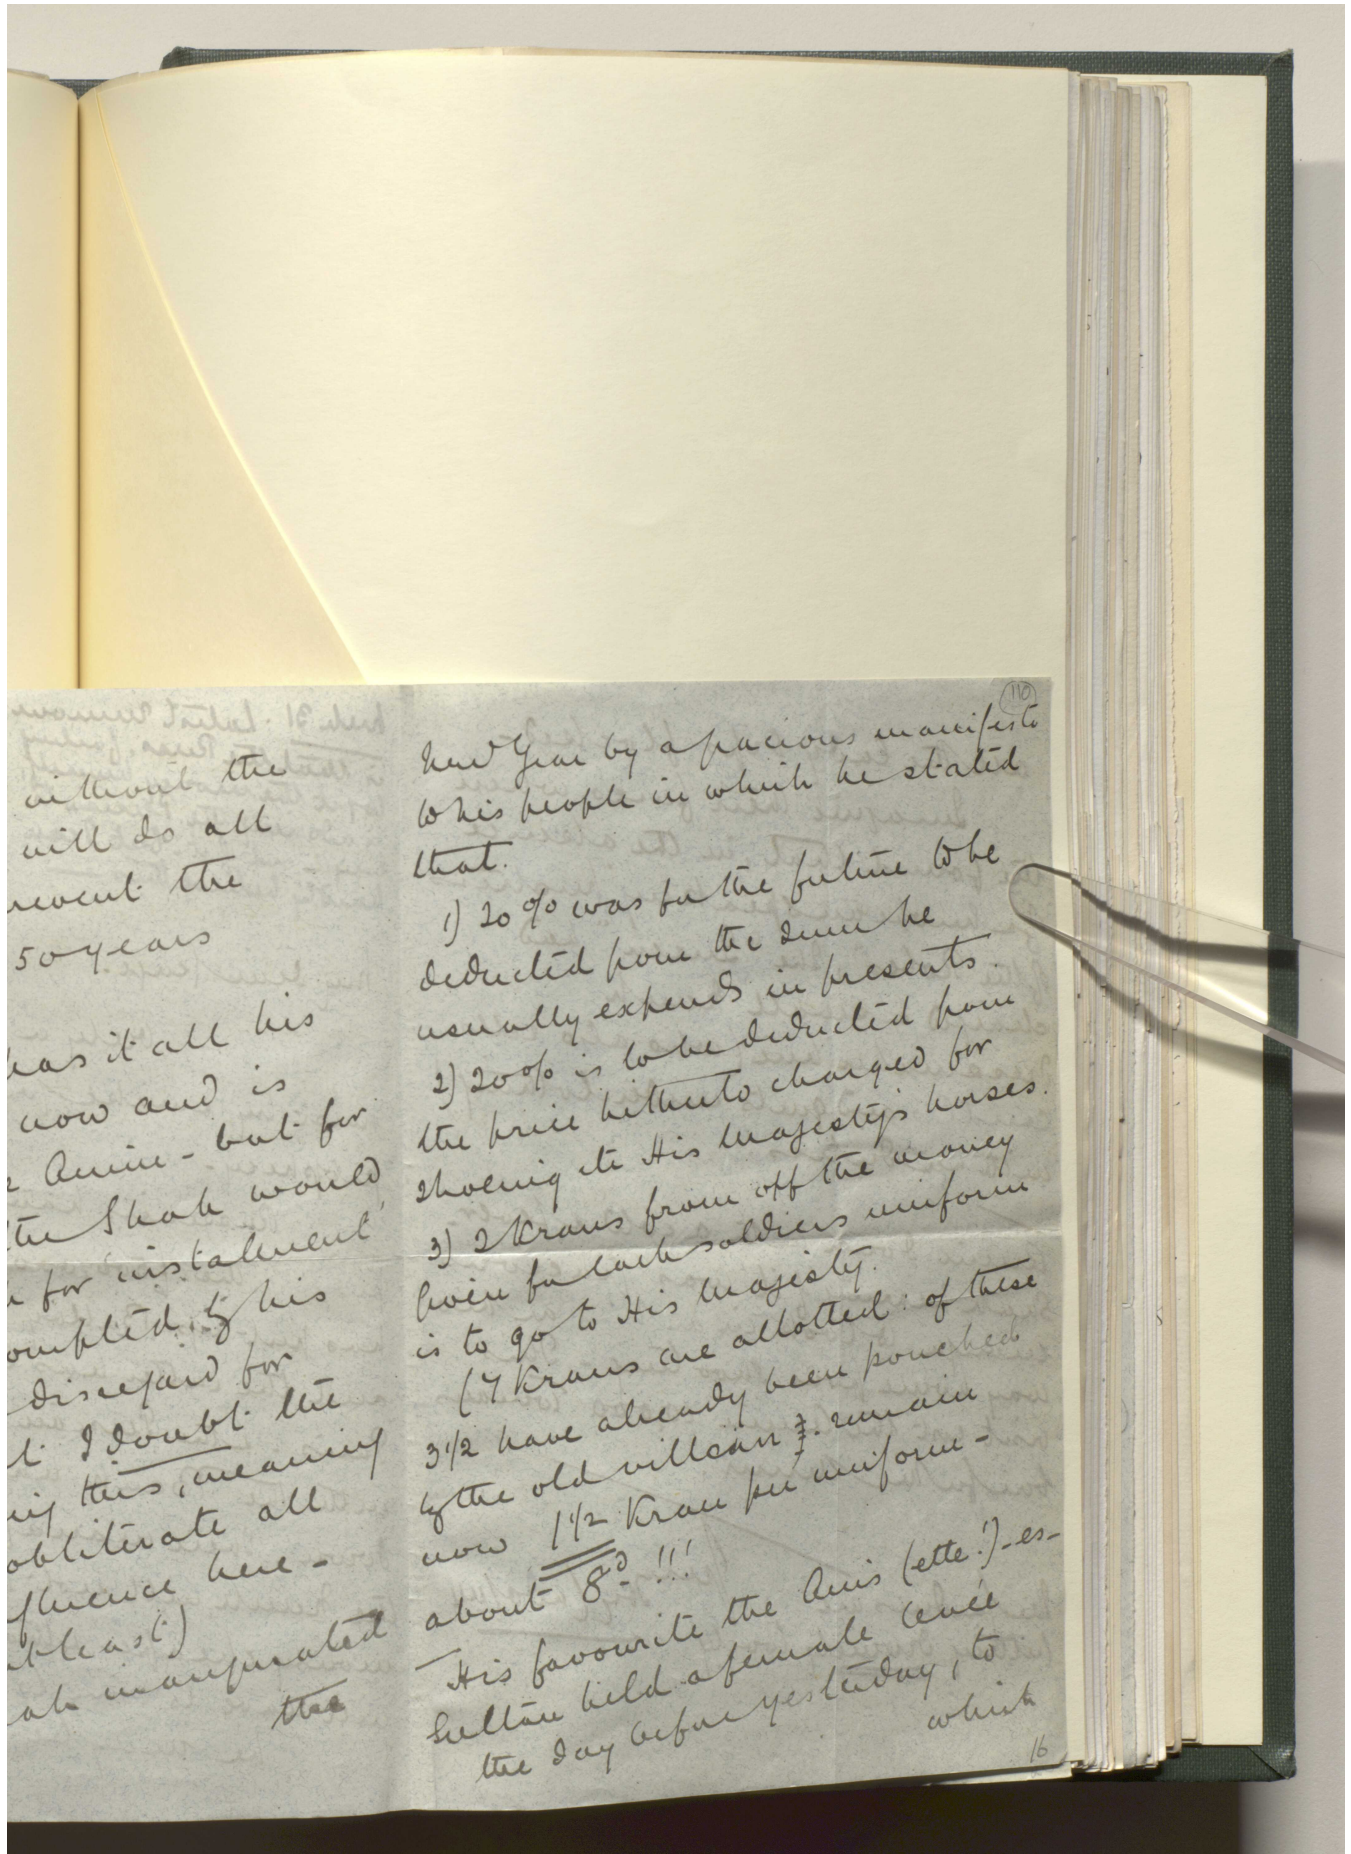 without the
will do all
prevent the
50 years
has it all his
now and is
Amin - but for
the Shah would
for 'instalment'
by his
disregard for
I doubt the
this, meaning
obliterate all
influence here -
at least)
inaugurated
the
110
New Year by a gracious manifesto
to his people in which he stated
that.
1) 20% was for the future to be
deducted from the sum he
usually expends in presents.
2) 20% is to be deducted from
the price hitherto charged for
shoeing etc His Majesty's horses.
3) 2 Krans from off the money
given for each soldiers uniform
is to go to His Majesty.
(7 Krans are allotted: of these
3 1/2 have already been pouched
by the old villain & remain
now 1 1/2 Kran per uniform -
about 8d !!!
His favourite the Anis (ette!)-es-
Sultan held a female levée
the day before yesterday, to
which
16